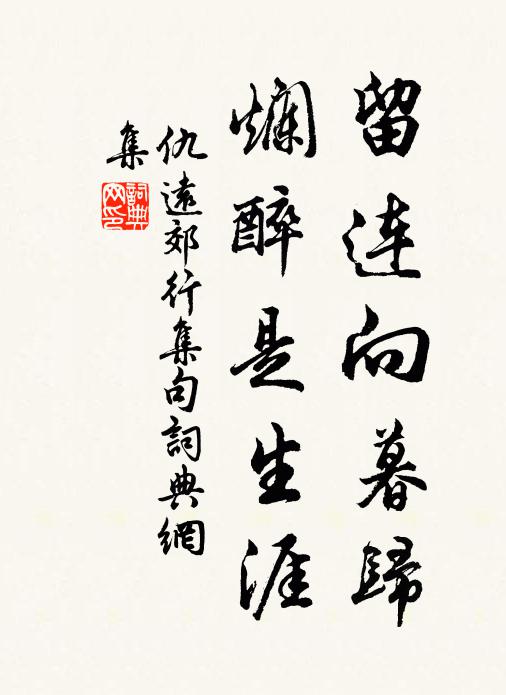 留連向暮歸
爛醉是生涯
仇遠郊行集句詞典網
集
詞典
网印